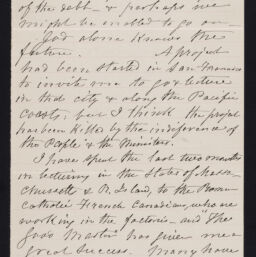 of the debt & perhaps we
might be enabled to go on.
God alone knows the
future. A project
had been started in San Francisco
to invite me to go & lecture
in that city & along the Pacific
coasts; but I think the project
has been killed by the indifference of
the People & the Ministers.
I have spent the last two months
in lecturing in the States of Massa-
chussetts & R. Island, to the Roman
Catholic French Canadians, who are
working in the factories - and "The
good Master" has given me a
great success. Many have